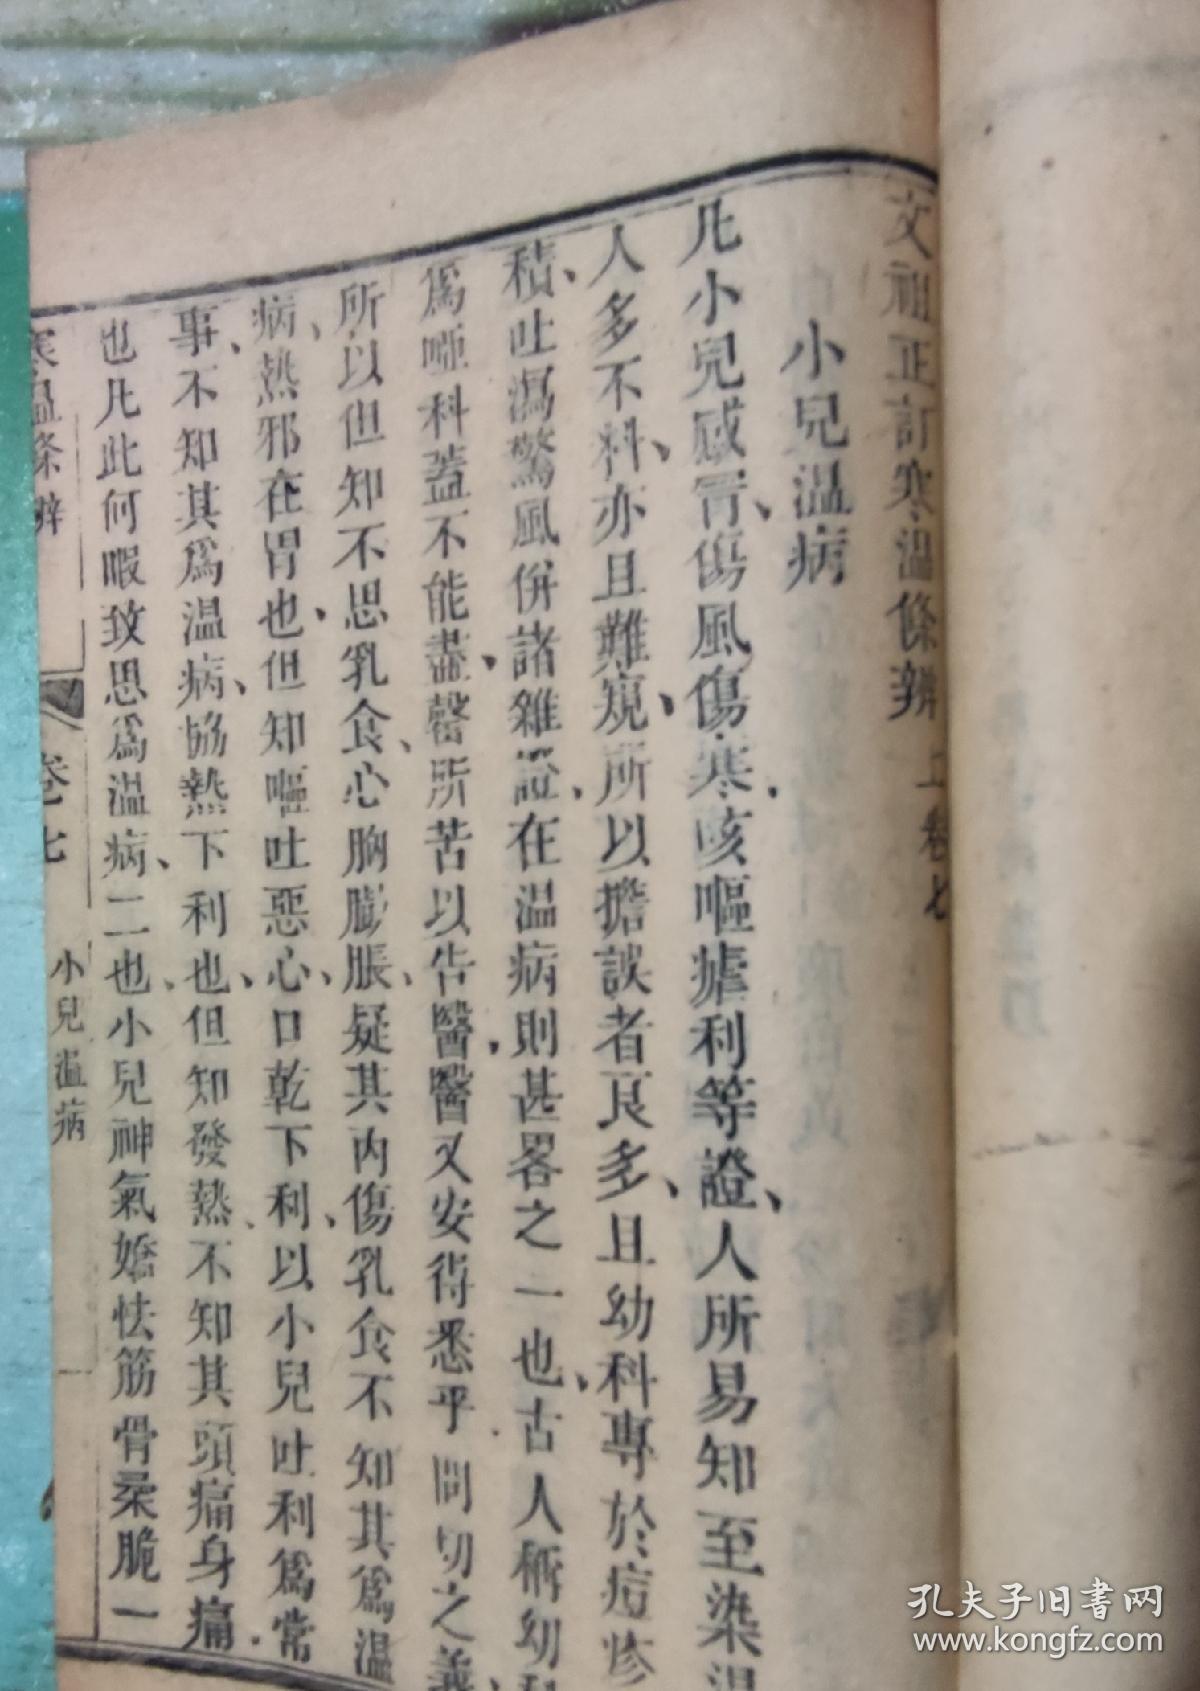 文祖正訂寒溫條辨 上卷七
小兒温病
凡小兒感冒、傷風傷寒、咳嘔瘧利等證、人所易知至染温
人多不料、亦且難窺、所以擔誤者良多、且幼科專於痘疹
積、吐瀉驚風併諸雜證、在温病則甚畧之一也、古人稱幼科
爲啞科蓋不能盡、罄所苦以告醫、醫又安得悉乎問切之義、
所以但知不思乳食、心胸膨脹、疑其内傷乳食不知其爲温
病、熱邪在胃也、但知嘔吐惡心、口乾下利、以小兒吐利爲常
事、不知其爲温病、協熱下利也、但知發熱、不知其頭痛身痛
也凡此何暇致思爲温病、二也、小兒神氣嬌怯筋骨柔脆一
寒温條辨 卷七 小兒温病
孔夫子旧書网
www.kongfz.com